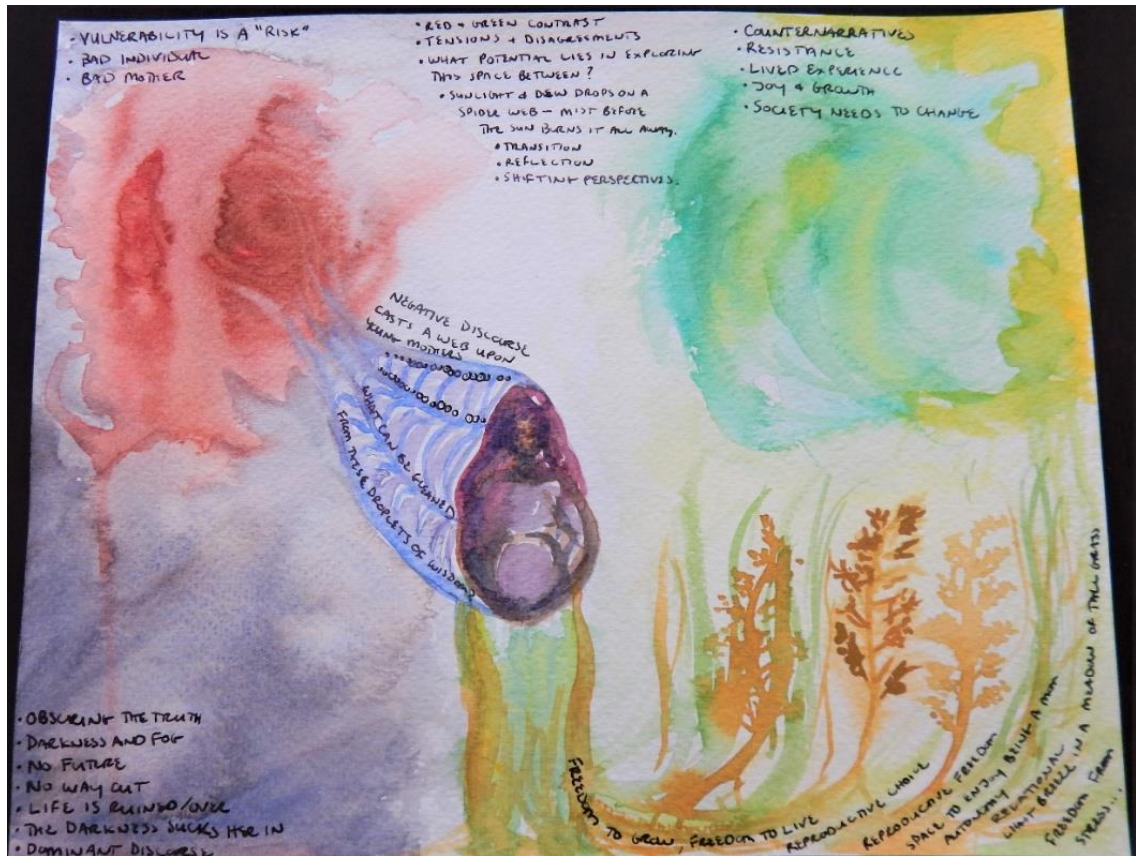 • VULNERABILITY IS A "RISK"
• BAD INDIVIDUAL
• BAD MOTHER
• RED + GREEN CONTRAST
• TENSIONS + DISAGREEMENTS
• WHAT POTENTIAL LIES IN EXPLORING
THIS SPACE BETWEEN?
• SUNLIGHT & DEW DROPS ON A
SPIDER WEB – MIST BEFORE
THE SUN BURNS IT ALL AWAY.
• TRANSITION
• REFLECTION
• SHIFTING PERSPECTIVES.
• COUNTERNARRATIVES
• RESISTANCE
• LIVED EXPERIENCE
• JOY & GROWTH
• SOCIETY NEEDS TO CHANGE
NEGATIVE DISCOURSE
CASTS A WEB UPON
YOUNG MOTHERS
WHAT CAN BE GLEANED
FROM THESE DROPLETS OF WISDOM?
• OBSCURING THE TRUTH
• DARKNESS AND FOG
• NO FUTURE
• NO WAY OUT
• LIFE IS RUINED/OVER
• THE DARKNESS SUCKS HER IN
• DOMINANT DISCOURSE
FREEDOM TO GROW, FREEDOM TO LIVE
REPRODUCTIVE CHOICE
REPRODUCTIVE FREEDOM
SPACE TO ENJOY BEING A MOM
AUTONOMY RELATIONAL
LIGHT BREEZE IN A MEADOW OR TALL GRASS
FREEDOM FROM
STRESS...